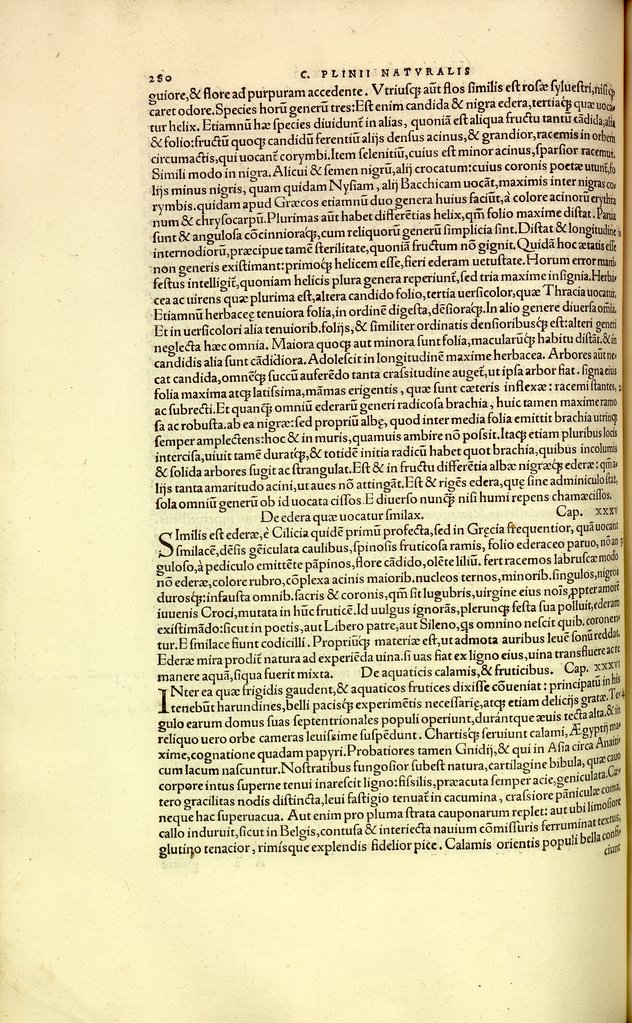 280 C. PLINII NATVRALIS
guiore,& flore ad purpuram accedente. Vtriusq; aũt flos similis est rosæ syluestri,nisi q
caret odore. Species horũ generũ tres:Est enim candida & nigra edera,tertiaq; quæ uoca
tur helix. Etiamnũ hæ species diuidunt̃ in alias, quoniã est aliqua fructu tantũ cãdida,alia
& folio:fructũ quoq; candidũ ferentiũ alijs densus acinus,& grandior,racemis in orbem
circumactis,qui uocant̃ corymbi.Item selenitiũ,cuius est minor acinus,sparsior racemus.
Simili modo in nigra. Alicui & semen nigrũ,alij crocatum:cuius coronis poetæ utunt̃,fo
lijs minus nigris, quam quidam Nysiam, alij Bacchicam uocãt,maximis inter nigras co
rymbis.quidam apud Græcos etiamnũ duo genera huius faciũt,à colore acinorũ erythra
num & chrysocarpũ.Plurimas aũt habet differẽtias helix,qm̃ folio maxime distat. Parua
sunt & angulosa cõcinnioraq;,cum reliquorũ generũ simplicia sint.Distat & longitudine
internodiorũ,præcipue tamẽ sterilitate,quoniã fructum nõ gignit.Quidã hoc ætatis esse
non generis existimant:primoq; helicem esse,fieri ederam uetustate.Horum error mani
festus intelligit̃,quoniam helicis plura genera reperiunt̃,sed tria maxime insignia.Herba
cea ac uirens quæ plurima est,altera candido folio,tertia uersicolor,quæ Thracia uocatur.
Etiamnũ herbaceę tenuiora folia,in ordinẽ digesta,dẽsioraq;.In alio genere diuersa omĩa.
Et in uersicolori alia tenuiorib.folijs,& similiter ordinatis densioribusq; est:alteri generi
neglecta hæc omnia. Maiora quoq; aut minora sunt folia,macularũq; habitu distãt.& in
candidis alia sunt cãdidiora.Adolescit in longitudinẽ maxime herbacea. Arbores aũt ne-
cat candida,omnẽq; succũ auferẽdo tanta crassitudine auget̃,ut ipsa arbor fiat. signa eius
folia maxima atq; latissima,mãmas erigentis, quæ sunt cæteris inflexæ: racemi stantes,
ac subrecti.Et quanq; omniũ ederarũ generi radicosa brachia, huic tamen maxime ramo
sa ac robusta.ab ea nigræ:sed propriũ albę,quod inter media folia emittit brachia utrinq;
semper amplectens:hoc & in muris,quamuis ambire nõ possit.Itaq; etiam pluribus locis
intercisa,uiuit tamẽ duratq;,& totidẽ initia radicũ habet quot brachia,quibus incolumis
& solida arbores sugit ac strangulat.Est & in fructu differẽtia albæ nigræq; ederæ: qm̃a
lijs tanta amaritudo acini,ut aues nõ attingãt.Est & rigẽs edera,quę sine adminiculo stat,
sola omniũ generũ ob id uocata cissos. E diuerso nunq; nisi humi repens chamæcissos.
De edera quæ uocatur smilax. Cap. XXXV
Similis est ederæ,è Cilicia quidẽ primũ profecta,sed in Gręcia frequentior, quã uocant
smilacẽ,dẽsis gẽiculata caulibus,spinosis fruticosa ramis, folio ederaceo paruo, nõ an
guloso,à pediculo emittẽte pãpinos,flore cãdido,olẽte liliũ. fert racemos labruscæ modo
nõ ederæ,colore rubro,cõplexa acinis maiorib.nucleos ternos,minorib.singulos,nigros
durosq;:infausta omnib.sacris & coronis,qm̃ sit lugubris,uirgine eius noĩs,ppter amorẽ
iuuenis Croci,mutata in hũc fruticẽ.Id uulgus ignorãs,plerunq; festa sua polluit,ederam
existimãdo:sicut in poetis,aut Libero patre,aut Sileno,qs omnino nescit quib. coronen
tur.E smilace fiunt codicilli. Propriũq; materiæ est,ut admota auribus leuẽ sonũ reddat.
Ederæ mira prodit̃ natura ad experiẽda uina.si uas fiat ex ligno eius,uina transfluere acre
manere aquã,siqua fuerit mixta. De aquaticis calamis,& fruticibus. Cap. XXXVI
INter ea quæ frigidis gaudent,& aquaticos frutices dixisse cõueniat: principatũ in his
tenebũt harundines,belli pacisq; experimẽtis necessarię,atq; etiam delicijs gratæ. Te
gulo earum domus suas septentrionales populi operiunt,durantque æuis tecta alta,& in
reliquo uero orbe cameras leuissime suspẽdunt. Chartisq; seruiunt calami, Ægyptij ma
xime,cognatione quadam papyri.Probatiores tamen Gnidij,& qui in Asia circa Anaiticum
cum lacum nascuntur.Nostratibus fungosior subest natura,cartilagine bibula, quæ cauo
corpore intus superne tenui inarescit ligno:fissilis,præacuta semper acie,geniculata.Cæ
tero gracilitas nodis distincta,leui fastigio tenuat̃ in cacumina, crassiore paniculæ coma,
neque hac superuacua. Aut enim pro pluma strata cauponarum replet: aut ubi limosiore
callo induruit,sicut in Belgis,contusa & interiecta nauium cõmissuris ferruminat textus,
glutino tenacior, rimisque explendis fidelior pice. Calamis orientis populi bella confi
ciunt